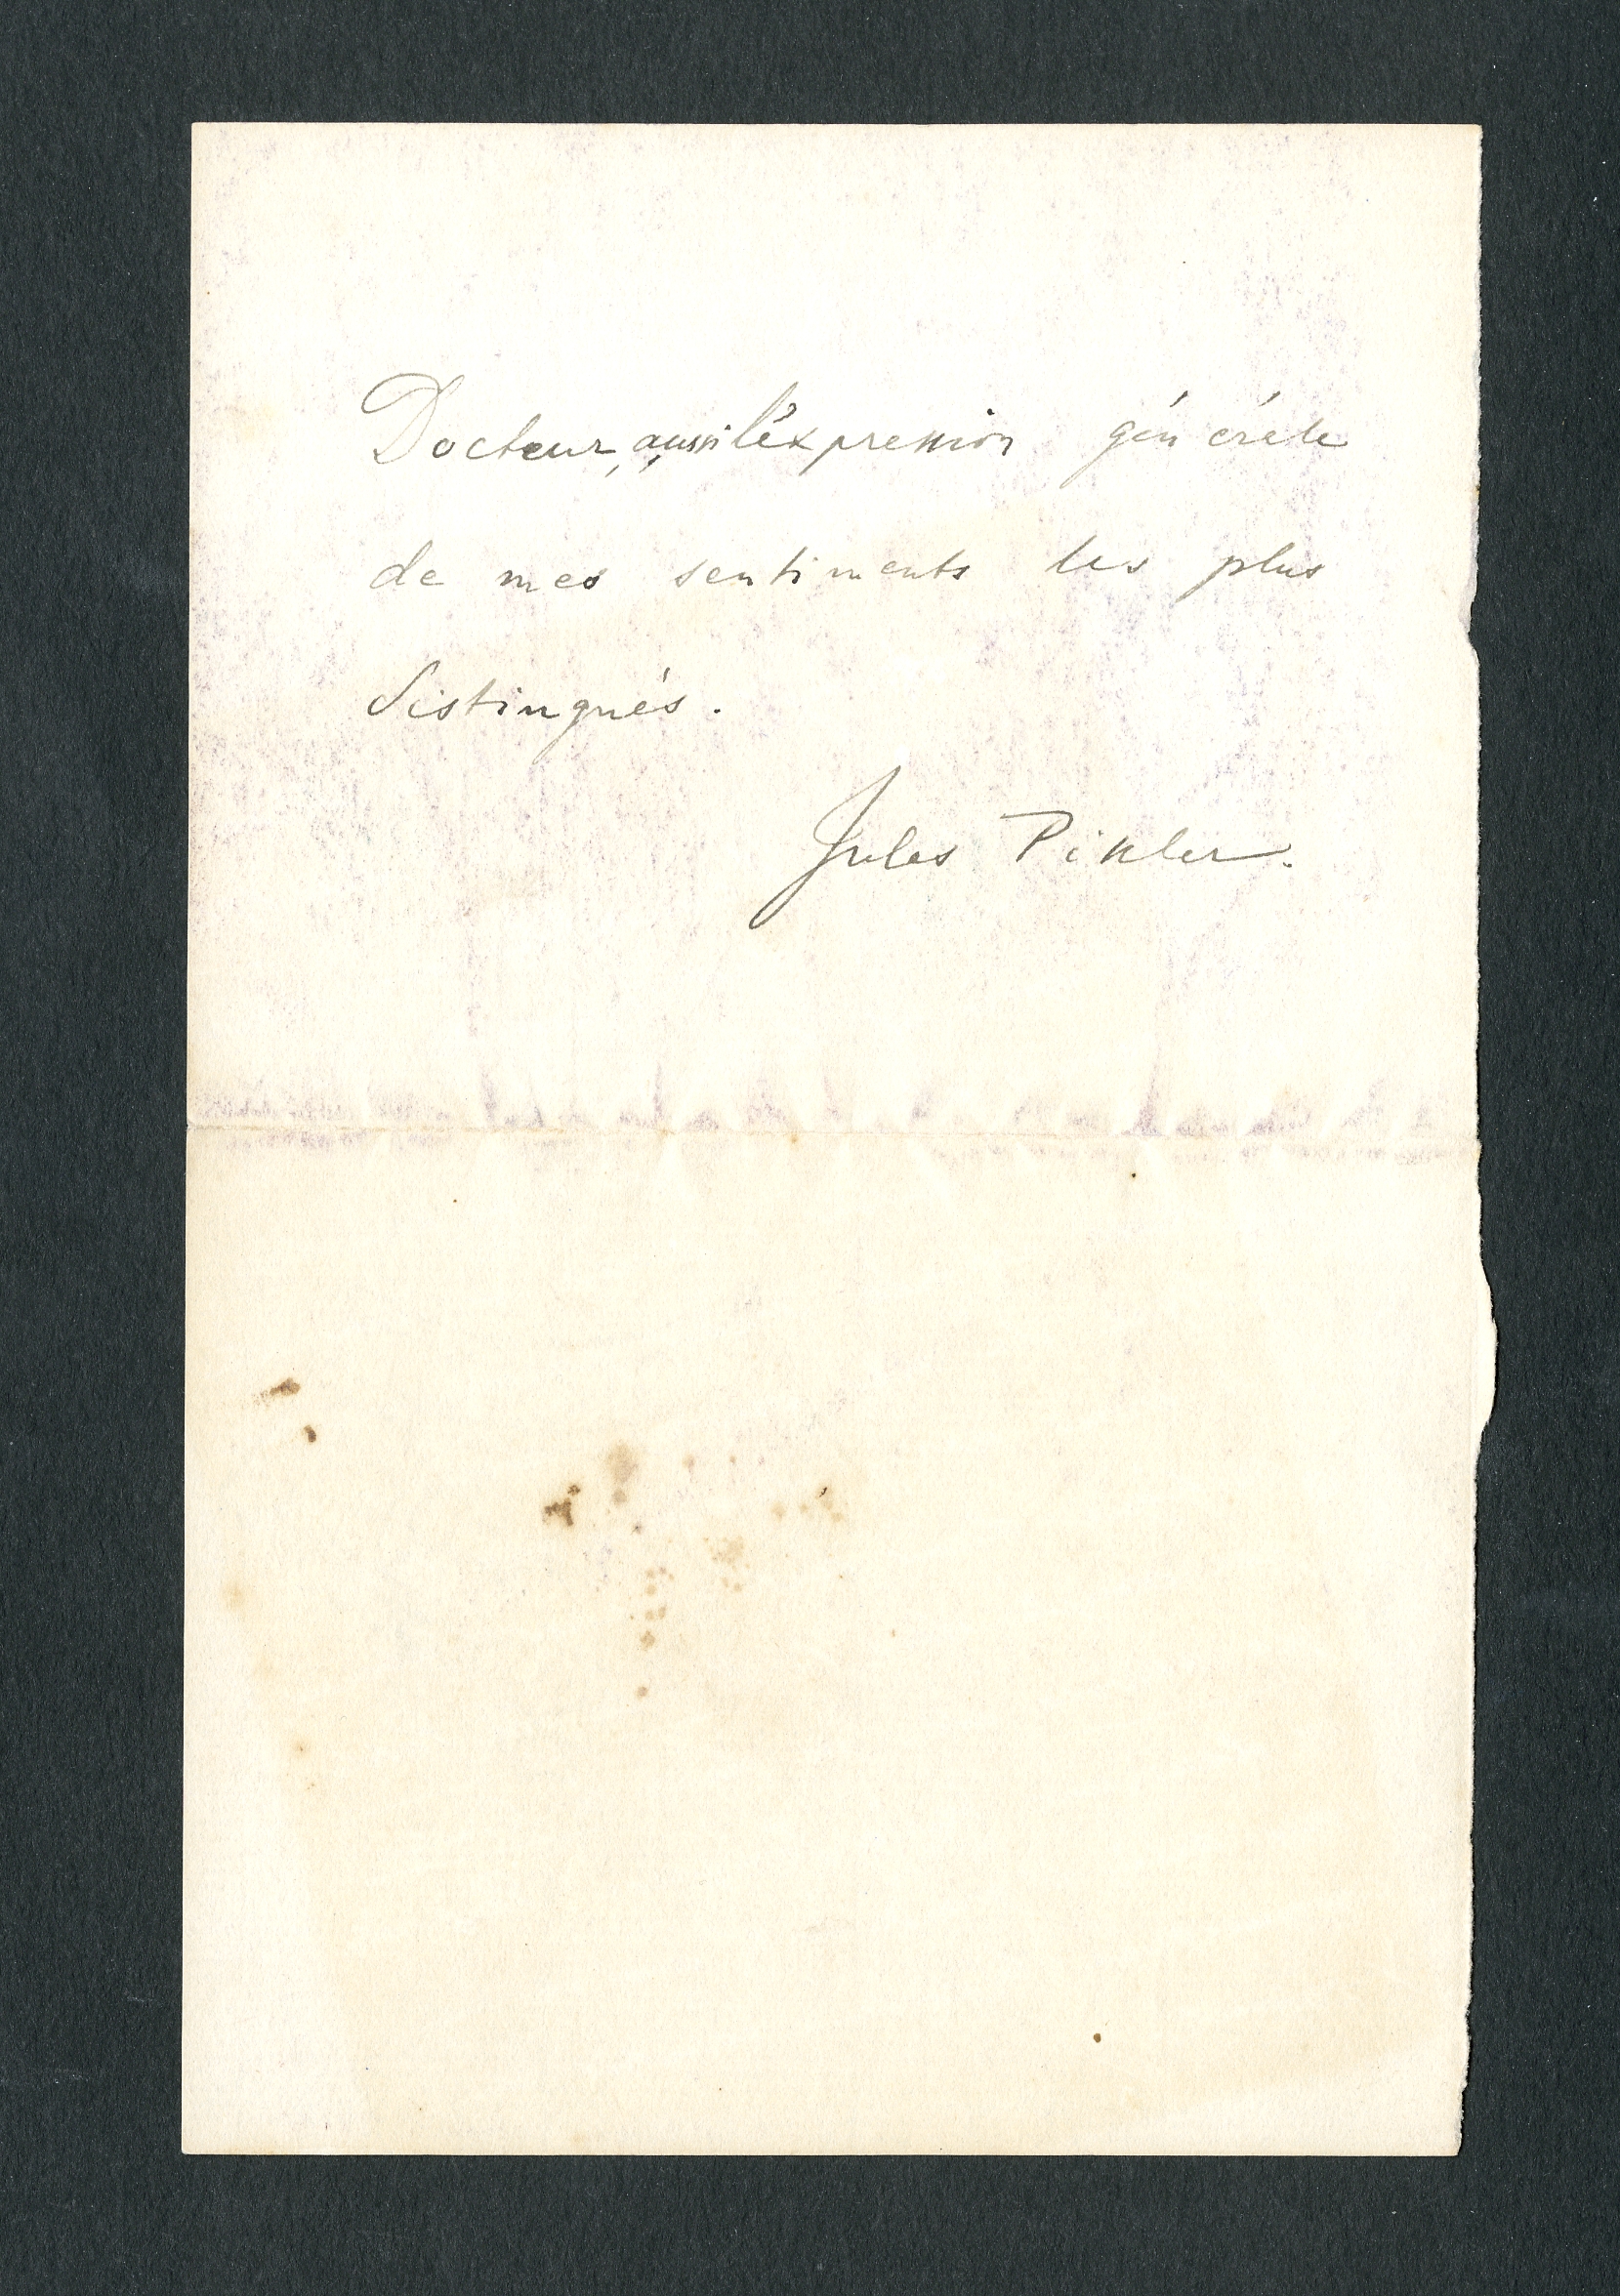 Docteur, aussi l'éxpression générale
de mes sentiments les plus
distingués.
Jules Pikler.